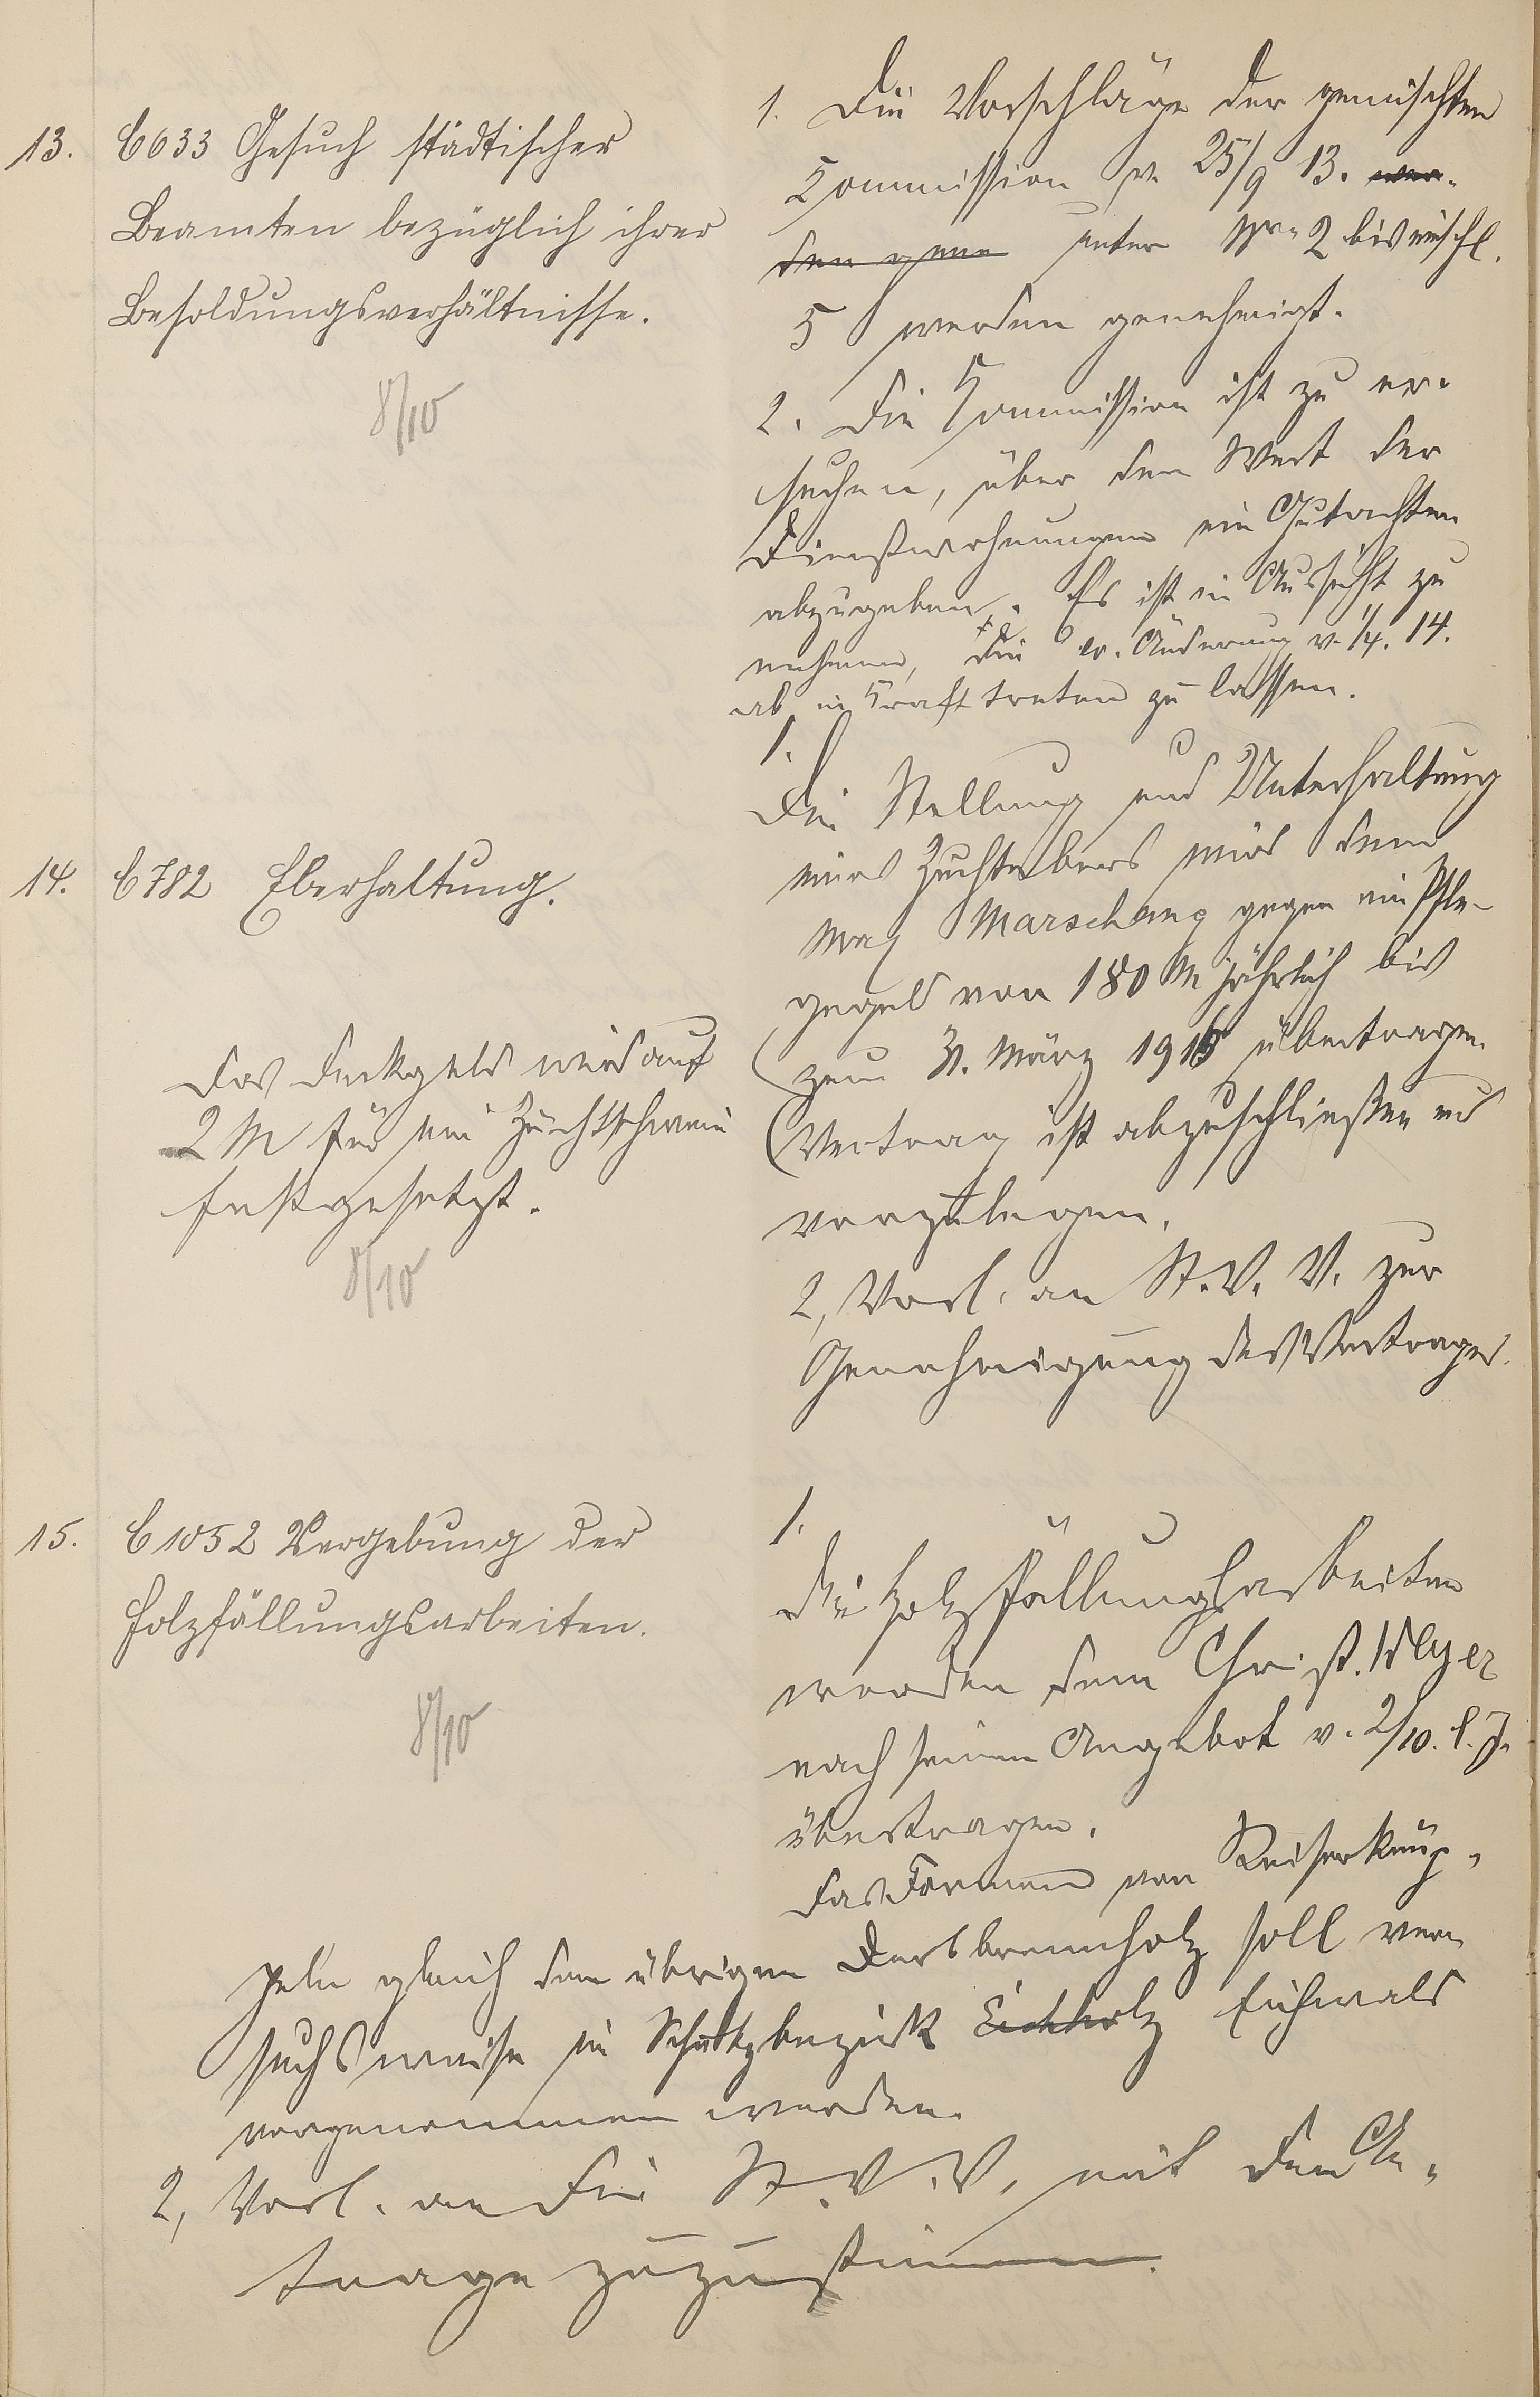 13. C 633 Gesuch städtischer
Beamten bezüglich ihrer
Besoldungsverhältnisse.
8/10
1. Die Vorschläge der gemischten
Kommission v. 25/9 13. wer-
den gene unter Nr. 2 bis einschl.
5 werden genehmigt.
2. Die Kommission ist zu er-
suchen, über den Wert der
Dienstwohnungen ein Gutachten
abzugeben. Es ist in Aussicht zu
nehmen, die ev. Änderung v. 1/4. 14.
ab in Kraft treten zu lassen.
14. C 782 Eberhaltung.
Das Deckgeld wird auf
2 M für ein Zuchtschwein
festgesetzt.
8/10
1.
Die Stellung und Unterhaltung
eines Zuchtebers wird dem
Max Marschang gegen ein Pfle-
gegeld von 180 M jährlich bis
zum 31. März 1916 übertragen.
Vertrag ist abzuschließen und
vorzulegen.
2, Vorl. an St. V. V. zur
Genehmigung des Vertrages.
15. C 1052 Vergebung der
Holzfällungsarbeiten.
8/10
1.
Die Holzfällungsarbeiten
werden dem Christ. Weyer
nach seinem Angebot v. 2/10. l. J.
übertragen.
Das Formen von Reiserknüp-
peln gleich dem übrigen Derbbrennholz soll ver-
suchsweise im Schutzbezirk Eichholz Eichwald
vorgenommen werden.
2, Vorl. an die St. V. V. mit dem An-
trage zuzustimmen.